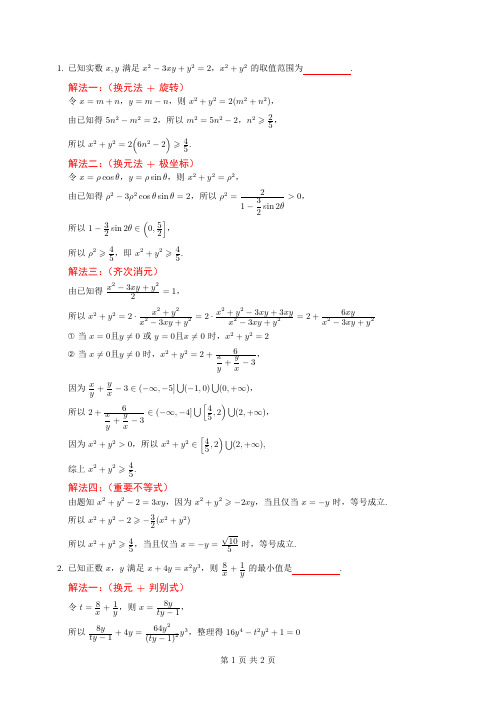 1. 已知实数 x, y 满足 x² − 3xy + y² = 2，x² + y² 的取值范围为______.
解法一：（换元法 + 旋转）
令 x = m + n，y = m − n，则 x² + y² = 2(m² + n²)，
由已知得 5n² − m² = 2，所以 m² = 5n² − 2，n² ⩾ 2/5，
所以 x² + y² = 2(6n² − 2) ⩾ 4/5.
解法二：（换元法 + 极坐标）
令 x = ρ cos θ，y = ρ sin θ，则 x² + y² = ρ²，
由已知得 ρ² − 3ρ² cos θ sin θ = 2，所以 ρ² = 2/(1 − 3/2 sin 2θ) > 0，
所以 1 − 3/2 sin 2θ ∈ (0, 5/2]，
所以 ρ² ⩾ 4/5，即 x² + y² ⩾ 4/5.
解法三：（齐次消元）
由已知得 (x² − 3xy + y²)/2 = 1，
所以 x² + y² = 2 · (x² + y²)/(x² − 3xy + y²) = 2 · (x² + y² − 3xy + 3xy)/(x² − 3xy + y²) = 2 + 6xy/(x² − 3xy + y²)
① 当 x = 0且y ≠ 0 或 y = 0且x ≠ 0 时，x² + y² = 2
② 当 x ≠ 0且y ≠ 0 时，x² + y² = 2 + 6/(x/y + y/x − 3)，
因为 x/y + y/x − 3 ∈ (−∞, −5] ⋃ (−1, 0) ⋃ (0, +∞)，
所以 2 + 6/(x/y + y/x − 3) ∈ (−∞, −4] ⋃ [4/5, 2) ⋃ (2, +∞)，
因为 x² + y² > 0，所以 x² + y² ∈ [4/5, 2) ⋃ (2, +∞)，
综上 x² + y² ⩾ 4/5.
解法四：（重要不等式）
由题知 x² + y² − 2 = 3xy，因为 x² + y² ⩾ −2xy，当且仅当 x = −y 时，等号成立.
所以 x² + y² − 2 ⩾ −3/2(x² + y²)
所以 x² + y² ⩾ 4/5，当且仅当 x = −y = √10/5 时，等号成立.
2. 已知正数 x，y 满足 x + 4y = x²y³，则 8/x + 1/y 的最小值是______.
解法一：（换元 + 判别式）
令 t = 8/x + 1/y，则 x = 8y/(ty − 1)，
所以 8y/(ty − 1) + 4y = 64y²/(ty − 1)² y³，整理得 16y⁴ − t²y² + 1 = 0
第 1 页 共 2 页